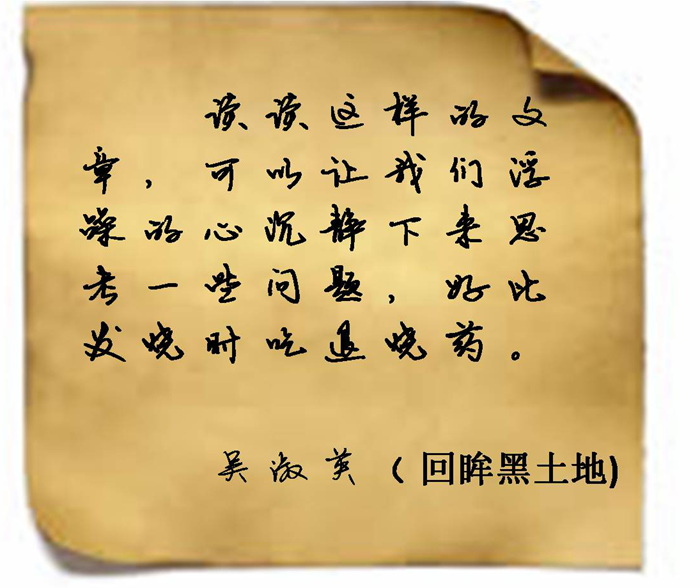 读读这样的文
章，可以让我们浮
躁的心沉静下来思
考一些问题，好比
发烧时吃退烧药。
吴淑英（回眸黑土地)